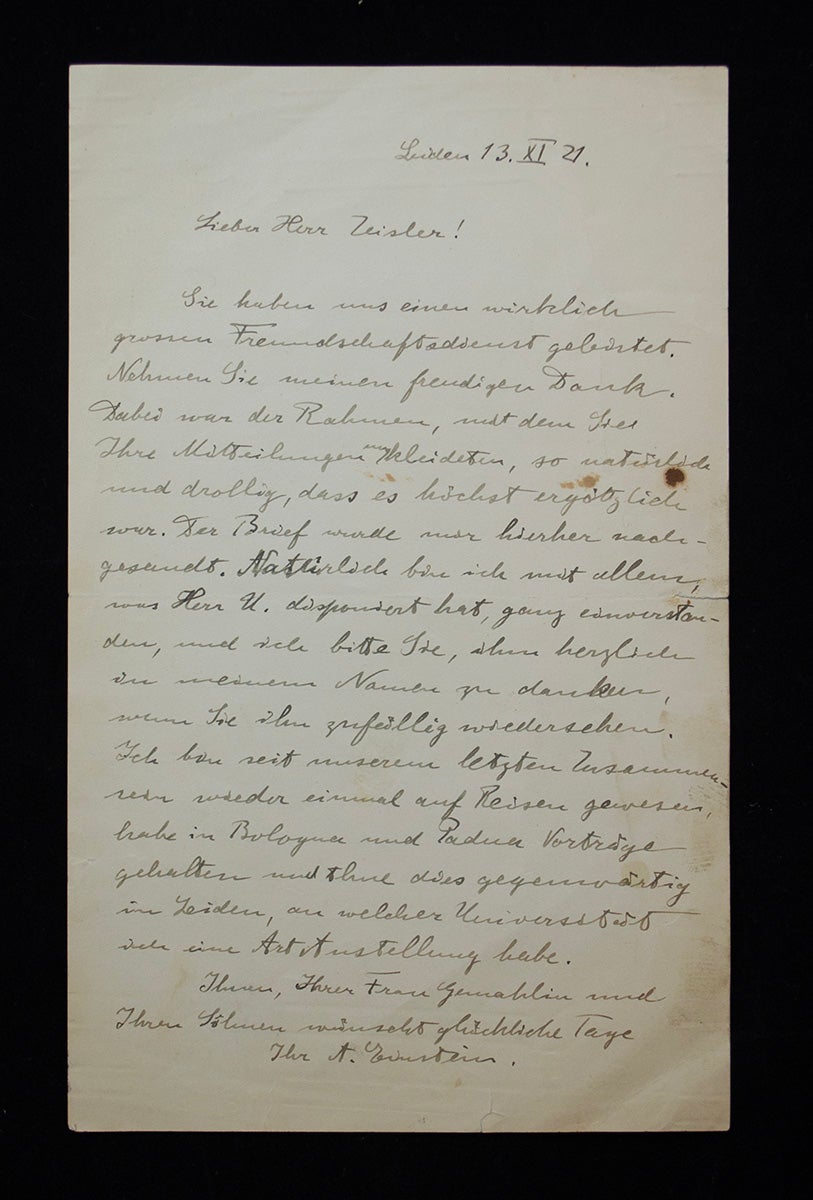 Leiden 13. XI 21.
Lieber Herr Zeisler!
Sie haben uns einen wirklich
grossen Freundschaftsdienst geleistet.
Nehmen Sie meinen freudigen Dank.
Dabei war der Rahmen, mit dem Sie
Ihre Mitteilungen umkleideten, so natürlich
und drollig, dass es höchst ergötzlich
war. Der Brief wurde mir hierher nach-
gesandt. Natürlich bin ich mit allem,
was Herr U. disponiert hat, ganz einverstan-
den, und ich bitte Sie, ihm herzlich
in meinem Namen zu danken,
wenn Sie ihn zufällig wiedersehen.
Ich bin seit unserem letzten Zusammen-
sein wieder einmal auf Reisen gewesen,
habe in Bologna und Padua Vorträge
gehalten und thue dies gegenwärtig
in Leiden, an welcher Universität
ich eine Art Anstellung habe.
Ihnen, Ihrer Frau Gemahlin und
Ihren Söhnen wünscht glückliche Tage
Ihr A. Einstein.